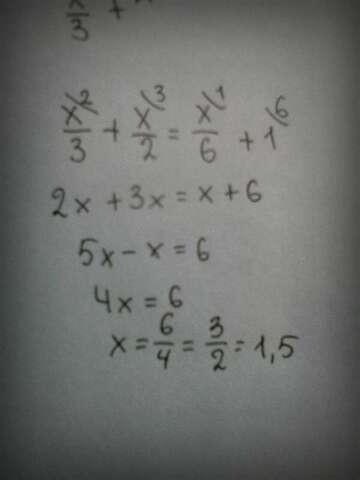 x/3 +
x/3 \2 + x/2 \3 = x/6 \1 + 1 \6
2x + 3x = x + 6
5x - x = 6
4x = 6
x = 6/4 = 3/2 = 1,5